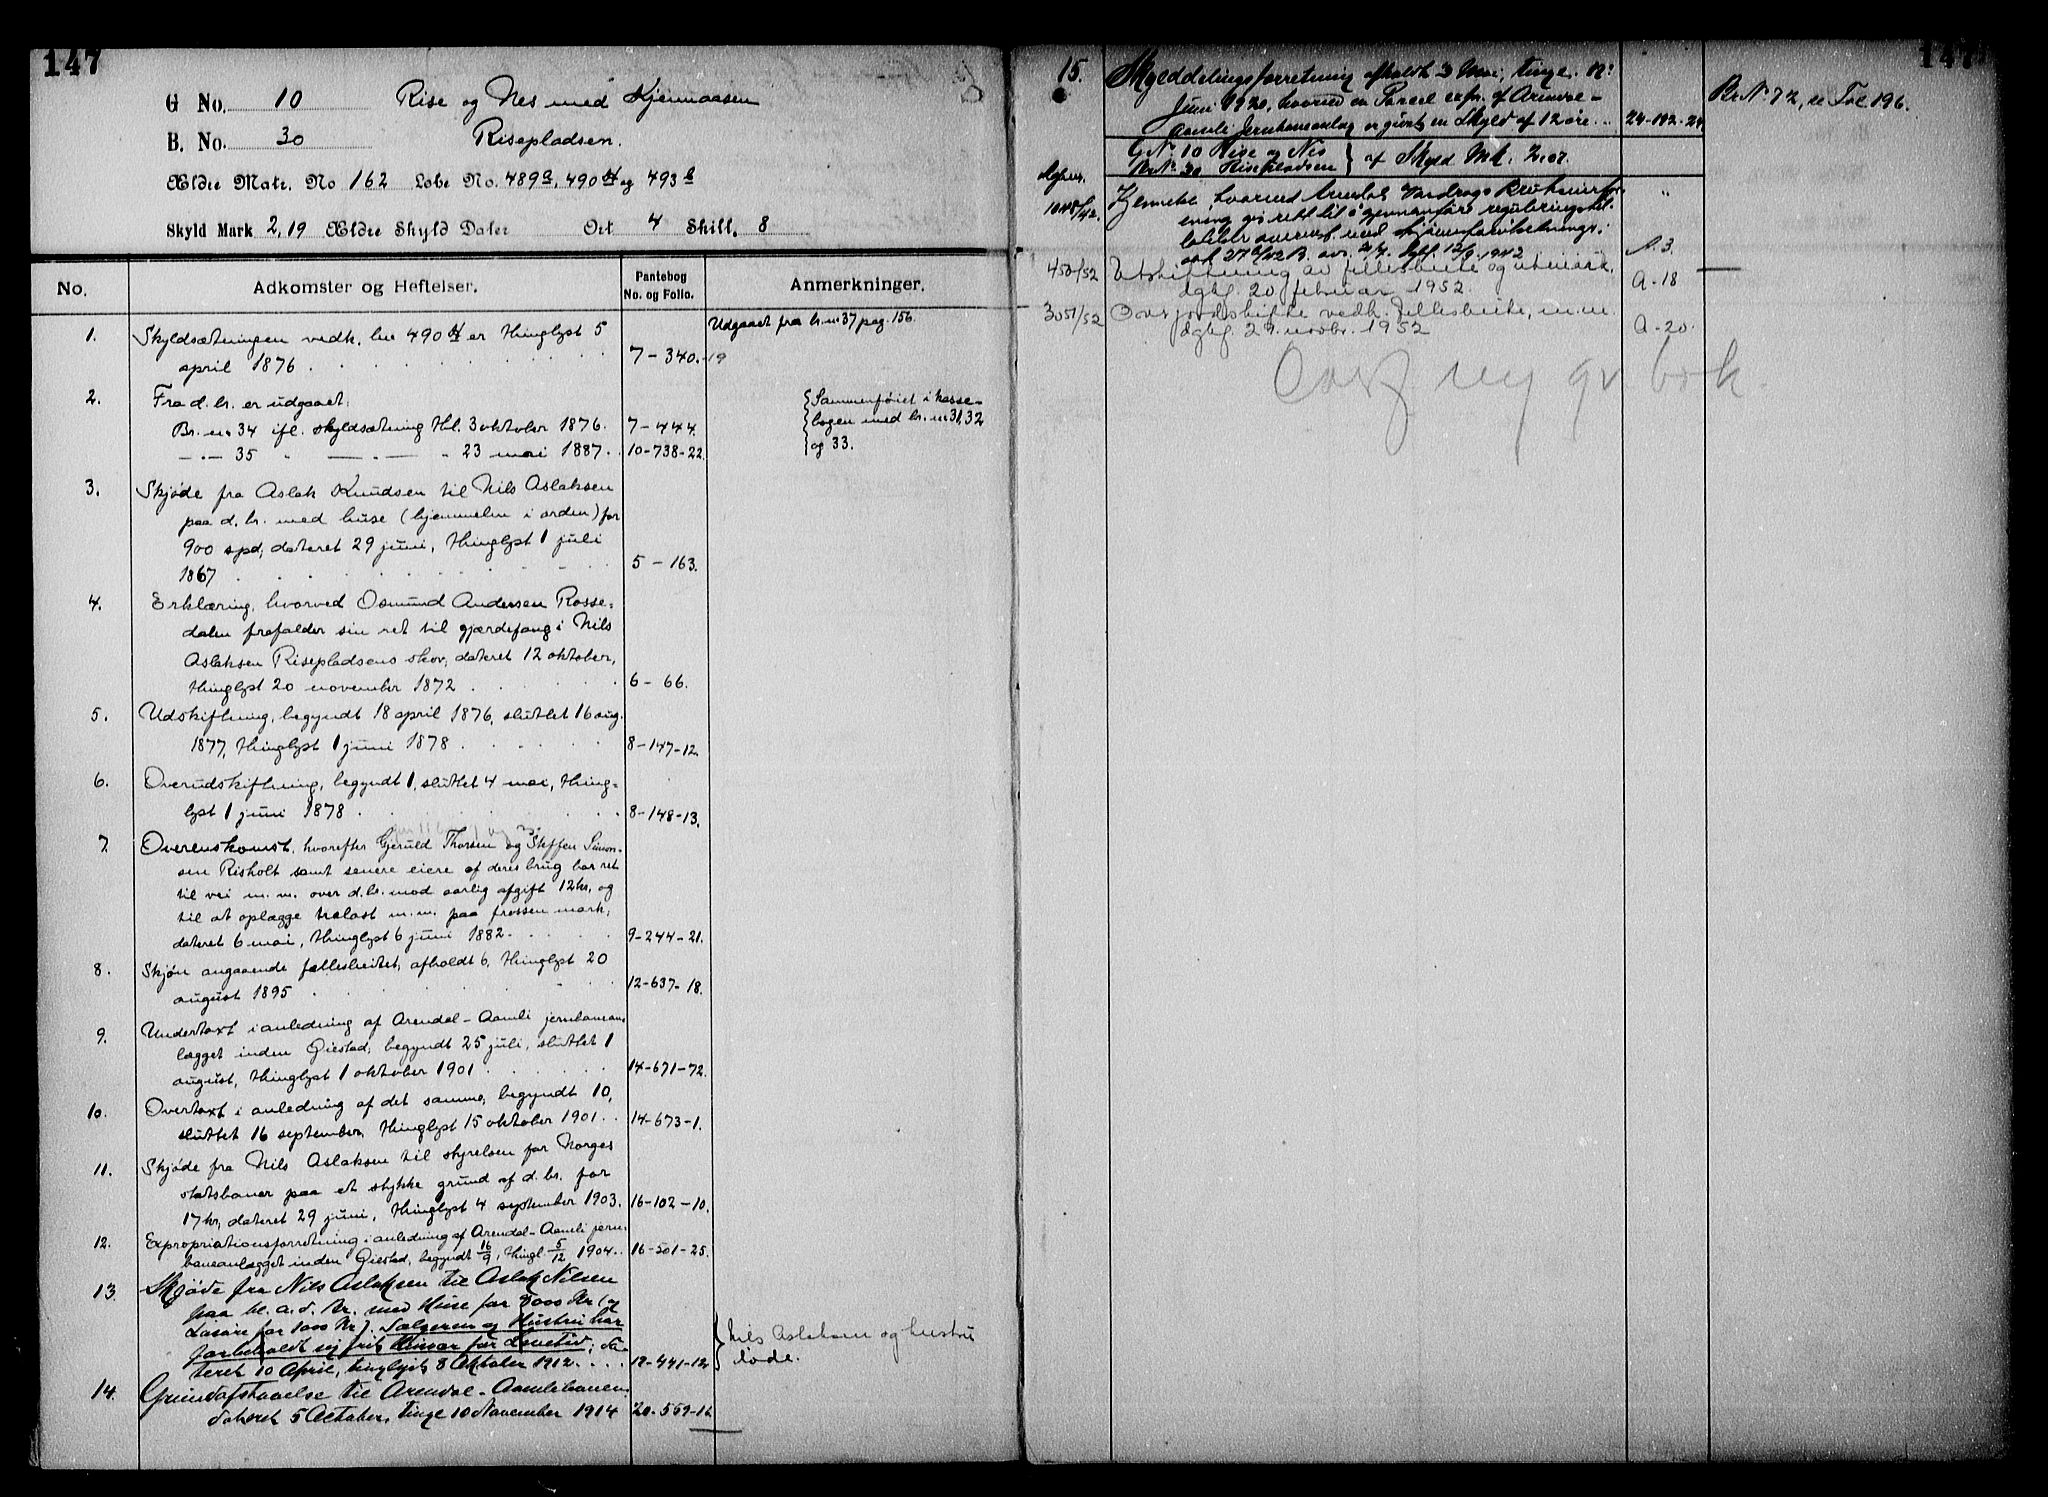 147
G No. 10 Rise og Nes med Kjennaasen
B. No. 30 Risepladsen.
Ældre Matr. No 162 Løbe No. 489a, 490d og 493b
Skyld Mark 2,19 Ældre Skyld Daler Ort 4 Skill. 8
No. Adkomster og Heftelser. Pantebog No. og Folio. Anmerkninger.
Udgaaet fra br. nr 37 pag. 156.
1. Skyldsætningen vedk. lnr 490d er thinglyst 5
april 1876 . . . 7 - 340.-19
2. Fra d. br. er udgaaet:
Br. nr 34 ifl. skyldsætning thl. 3 oktober 1876. 7 - 444.
- " - 35 " - " - " 23 mai 1887. 10-738-22.
Sammenføiet i kasse-
bogen med br. nr 31, 32
og 33.
3. Skjøde fra Aslak Knudsen til Nils Aslaksen
paa d. br. med huse (hjemmelen i orden) for
900 spd, dateret 29 juni, thinglyst 1 juli
1867 . . . 5 - 163.
4. Erklæring, hvorved Osmund Andersen Rosse-
dalen frafalder sin ret til gjærdefang i Nils
Aslaksen Risepladsens skov, dateret 12 oktober,
thinglyst 20 november 1872 . . . 6 - 66.
5. Udskiftning, begyndt 18 april 1876, sluttet 16 aug.
1877, thinglyst 1 juni 1878 . . . 8-147-12.
6. Overudskiftning, begyndt 1, sluttet 4 mai, thing-
lyst 1 juni 1878 . . . 8-148-13.
7. Overenskomst, hvorefter Gjeruld Thorsen og Steffen Simon-
sen Risholt samt senere eiere af deres brug har ret
til vei m. m. over d. br. mod aarlig afgift 12 kr, og
til at oplægge trælast m. m. paa frossen mark,
dateret 6 mai, thinglyst 6 juni 1882. . . 9-244-21.
8. Skjøn angaaende fællesbeitet, afholdt 6, thinglyst 20
august 1895 . . . 12-637-18.
9. Undertaxt i anledning af Arendal-Aamli jernbanean-
lægget inden Øiestad, begyndt 25 juli, sluttet 1
august, thinglyst 1 oktober 1901 . . . 14-671-72.
10. Overtaxt i anledning af det samme, begyndt 10,
sluttet 16 september, thinglyst 15 oktober 1901. . 14-673-1.
11. Skjøde fra Nils Aslaksen til styrelsen for Norges
statsbaner paa et stykke grund af d. br. for
17 kr, dateret 29 juni, thinglyst 4 september 1903. 16-102-10.
12. Expropriationsforretning i anledning af Arendal-Aamli jern-
baneanlægget inden Øiestad, begyndt 16/9, thingl 5/12 1904. . 16-501-25.
13. Skjøde fra Nils Aslaksen til Aslak Nilsen
paa bl. a. d. Br. med Huse for 8000 Kr (og
Løsøre for 1000 Kr). Sælgeren og Hustru har
forbeholdt sig frit Husvær for Livstid; da-
teret 10 April, tinglyst 8 Oktober 1912. . . . 19-441-12.
Nils Aslaksen og hustru
døde.
14. Grundafstaaelse til Arendal-Aamlibanen
dateret 5 October, tingl 10 November 1914 20-569-16
147
15. Skylddelingsforretning afholdt 3 Mai, tingl. 12.
Juni 1920, hvorved en Parcel expr. af Arendal-
Aamli Jernbaneanlæg er givet en Skyld af 12 øre. . 24-192-24
Br. No. 72, se Fol. 196.
G. No. 10 Rise og Nes
Br. No. 30 Risepladsen } af Skyld Mk. 2.07.
Dgbnr.
1048/42. Kjennelse, hvorved Arendals Vasdrags Brukseierfor-
ening gis rett til å gjennemføre reguleringstil-
1952
450/52 Utskiftning av fellesbeite og utmark.
dgbf. 20 februar 1952. A-18
3051/52 Overjordskifte vedk. fellesbeite, m.m.
dgbf. 29. novbr. 1952 A-20.
Overf. ny gr bok.